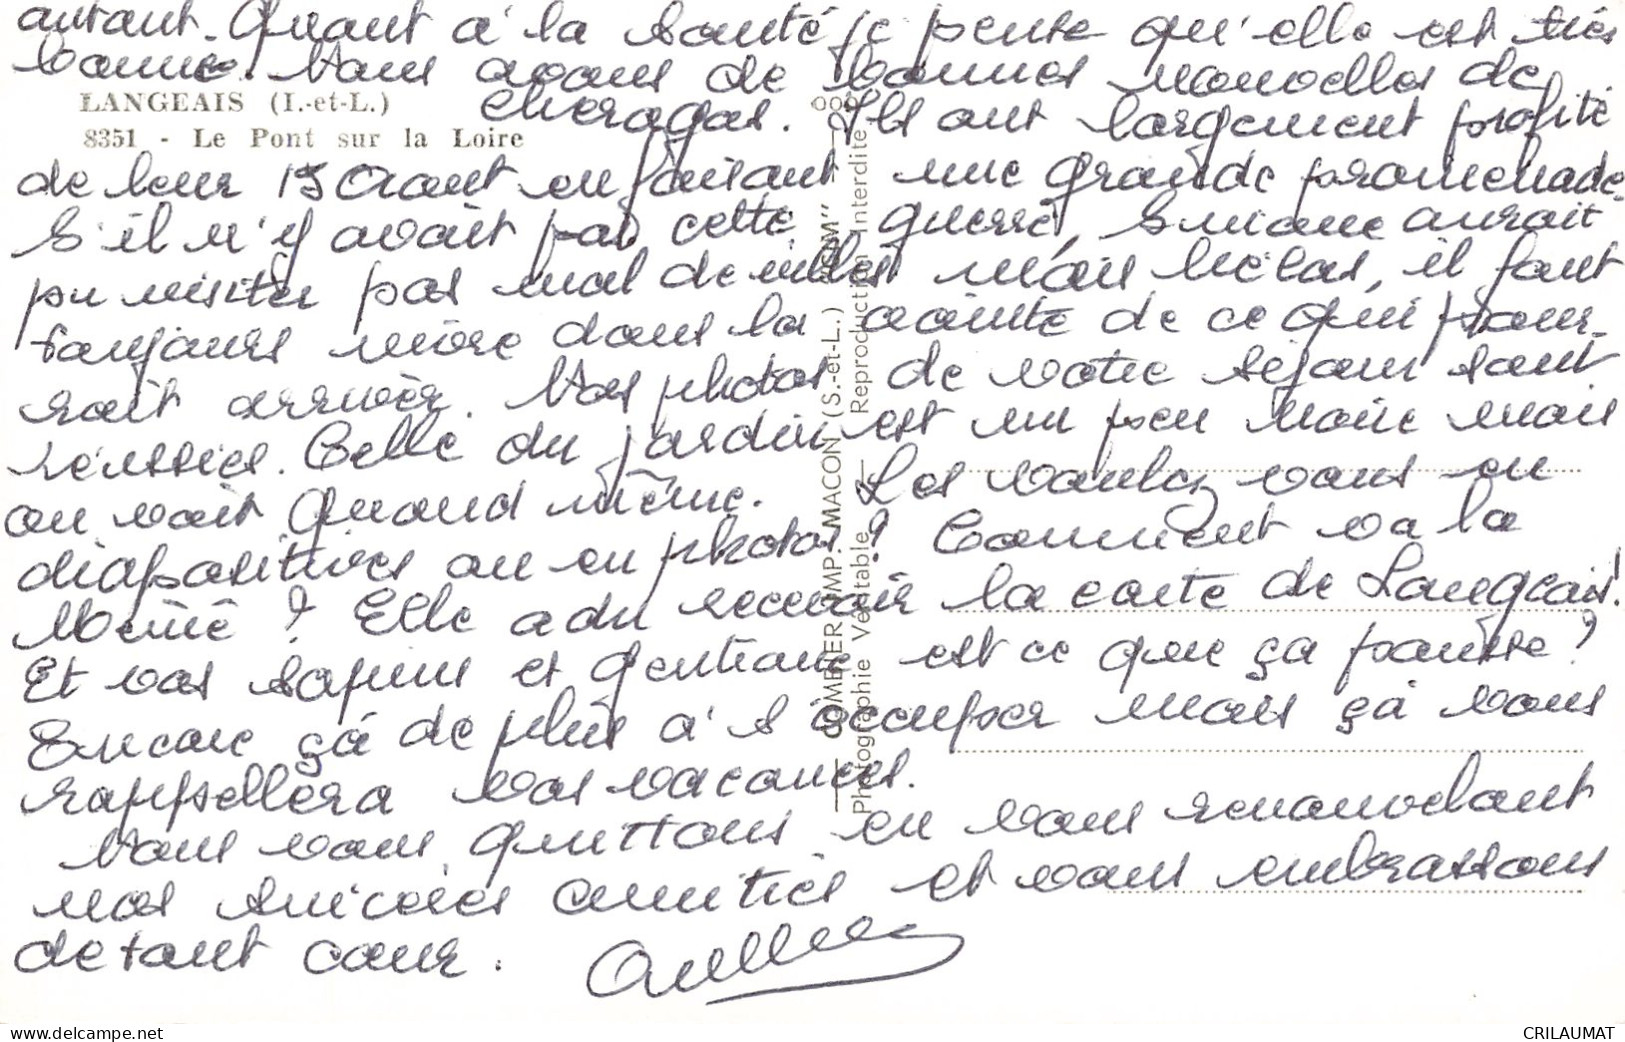 autant. Quant à la santé je pense qu'elle est très
bonne. Nous avons de bonnes nouvelles de
LANGEAIS (I.-et-L.)
Cheragas. Ils ont largement profité
8351 - Le Pont sur la Loire
de leur 15 Août en faisant une grande promenade.
S'il n'y avait pas cette guerre, Simone aurait
pu visiter pas mal de villes mais hélas, il faut
toujours vivre dans la crainte de ce qui pour-
rait arriver. Nos photos de votre séjour sont
réussies. Celle du jardin est un peu noire mais
on voit quand même. Les voulez vous en
diapositives ou en photos? Comment va la
Mémé? Elle a du recevoir la carte de Langeais!
Et vos sapins et gentiane est ce que ça pousse?
Encore ça de plus à s'occuper mais ça vous
rappellera vos vacances.
Nous vous quittons en vous renouvelant
nos sincères amitiés et vous embrassons
de tout cœur.
COMBIER IMP. MACON (S.-et-L.) "CIM"
Photographie Véritable — Reproduction Interdite
www.delcampe.net
CRILAUMAT